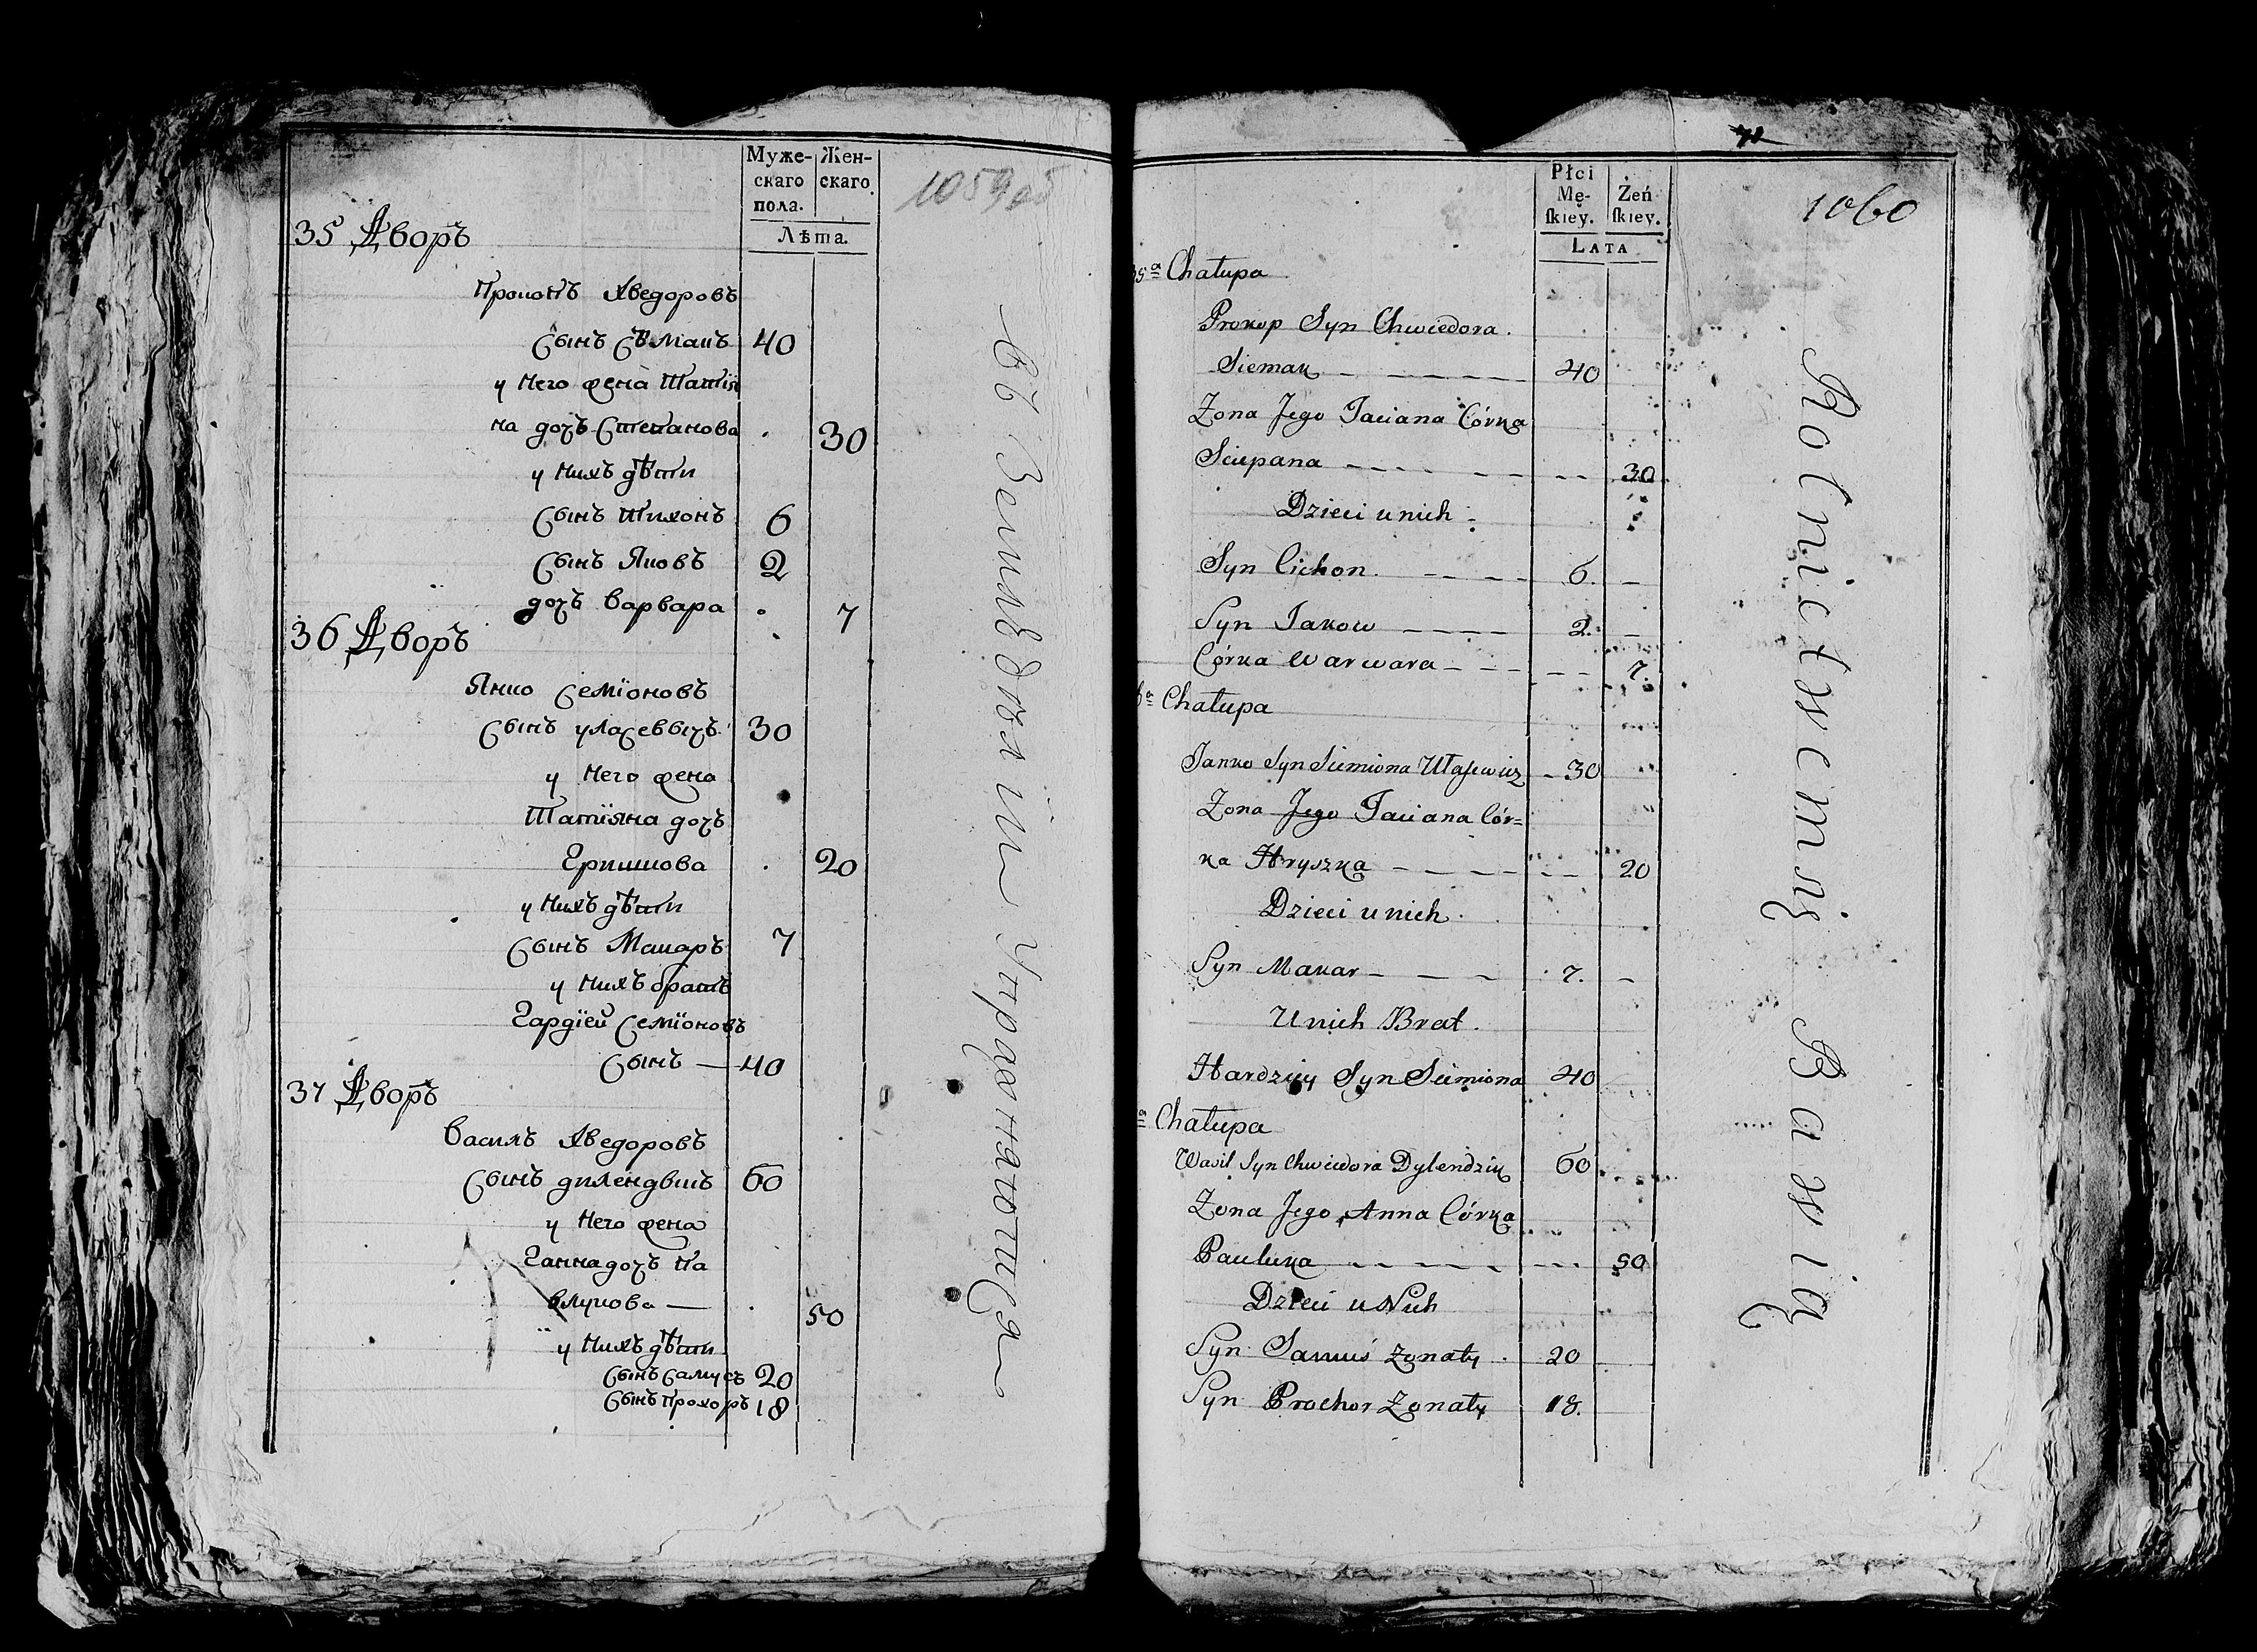 Муже-
скаго
пола.
Жен-
скаго
Лѣта.
1059 об
35 Дворъ
Прокопъ Хведоровъ
Сынъ Сѣмакъ 40
у него жена Татія
на дочъ Степанова 30
у нихъ дѣти
Сынъ Тихонъ 6
Сынъ Яковъ 2
дочъ Варвара 7
36 Дворъ
Янко Семіоновъ
Сынъ уласевычъ 30
у него жена
Татіяна дочъ
Гришкова 20
у нихъ дѣти
Сынъ Макаръ 7
у нихъ братъ
Гардіей Семіоновъ
Сынъ — 40
37 Дворъ
Василь Хведоровъ
Сынъ дилендзикъ 60
у него жена
Ганна дочъ Па
влукова — 50
у нихъ дѣти
Сынъ Самусъ 20
Сынъ Прохоръ 18
въ Земледѣліи Упражняютися
Płci
Mę-
ſkiey.
Żeń
ſkiey.
LATA
1060
35ª Chałupa
Prokop Syn Chwiedora
Siemak 40
Żona Jego Taciana Córka
Sciepana 30
Dzieci u nich
Syn Cichon 6
Syn Jakow 2
Córka Warwara 7
6ª Chałupa
Janko Syn Siemiona Ułasewicz 30
Żona Jego Taciana Cór=
ka Hryszka 20
Dzieci u nich
Syn Makar 7
U nich Brat
Hardziey Syn Siemiona 40
ª Chałupa
Wasil Syn Chwiedora Dylendzik 60
Żona Jego Anna Córka
Pauluka 50
Dzieci u Nich
Syn Samuś żonaty 20
Syn Prochor Żonaty 18
Rolnictwem się Bawią